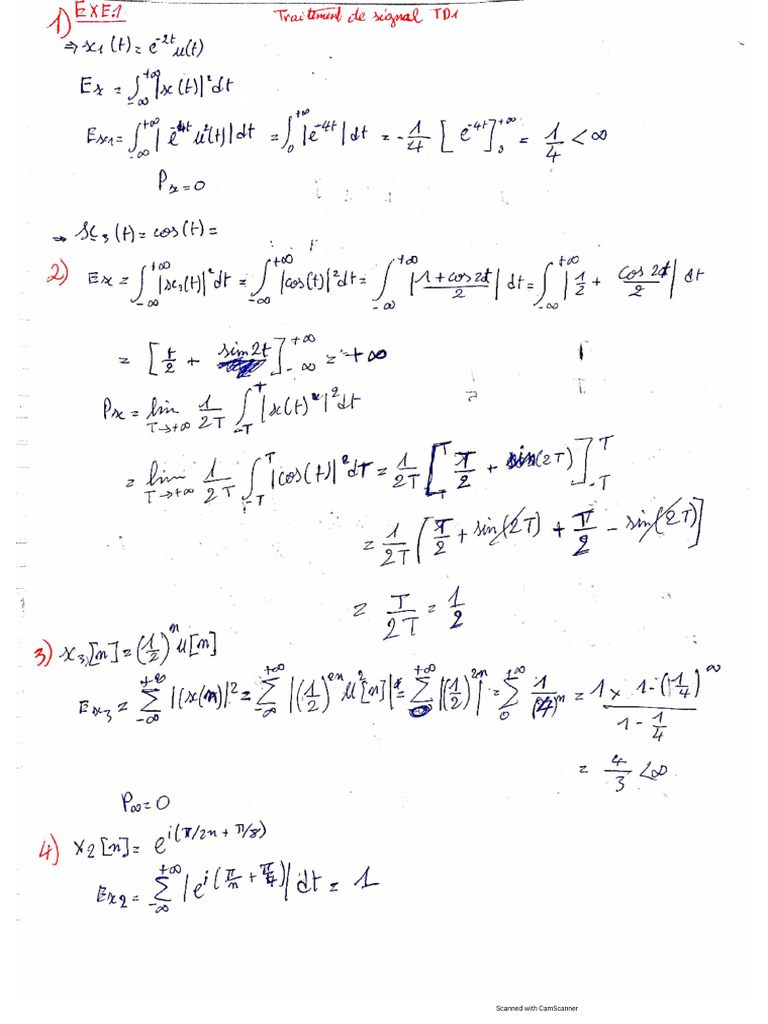 1) EXE:1 Traitement de signal TD1
⇒ x₁(t) = e^{-2t} u(t)
Ex = ∫_{-∞}^{+∞} |x(t)|² dt
Ex₁ = ∫_{-∞}^{+∞} |e^{-4t} u²(t)| dt = ∫_0^{+∞} |e^{-4t}| dt = -1/4 [e^{-4t}]_0^{+∞} = 1/4 < ∞
P_x = 0
⇒ x_3(t) = cos(t) =
2) Ex = ∫_{-∞}^{+∞} |x₃(t)|² dt = ∫_{-∞}^{+∞} |cos(t)|² dt = ∫_{-∞}^{+∞} |(1 + cos 2t)/2| dt = ∫_{-∞}^{+∞} |1/2 + cos 2t/2| dt
= [t/2 + sin 2t]_{-∞}^{+∞} = +∞
Px = lim_{T→+∞} 1/2T ∫_{-T}^{T} |x(t)|² dt
= lim_{T→+∞} 1/2T ∫_{-T}^{T} |cos(t)|² dt = 1/2T [T/2 + sin(2T)]_{-T}^{T}
= 1/2T [T/2 + sin(2T) + T/2 - sin(2T)]
= T/2T = 1/2
3) x₃[n] = (1/2)^n u[n]
Ex₃ = Σ_{-∞}^{+∞} |(x(n)|² = Σ_{-∞}^{+∞} |(1/2)^{2n} u²[n]| = Σ_0^{+∞} |(1/2)^{2n}| = Σ_0^{+∞} 1/(4)^n = 1 × (1 - (1/4)^∞)/(1 - 1/4)
= 4/3 < ∞
P∞ = 0
4) x₂[n] = e^{i(π/2n + π/8)}
Ex₂ = Σ_{-∞}^{+∞} |e^{i(π/n + π/4)}| dt = 1
Scanned with CamScanner